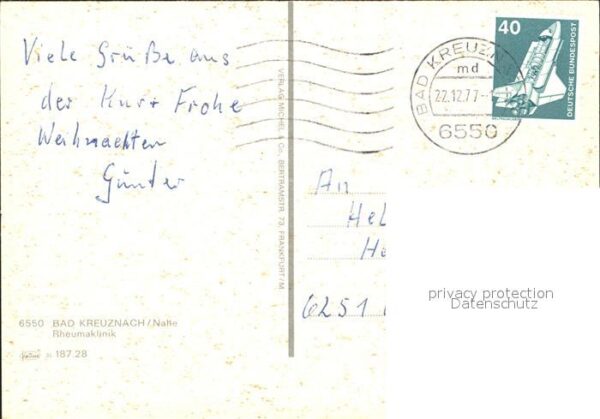 Viele Grüße aus
der Kur + Frohe
Weihnachten
Günter
6550 BAD KREUZNACH/Nahe
Rheumaklinik
187.28
VERLAG MICHEL & Co., BERTRAMSTR. 73, FRANKFURT/M.
BAD KREUZN
md
22.12.77
6550
40
DEUTSCHE BUNDESPOST
An
Hel
He
6251
privacy protection
Datenschutz